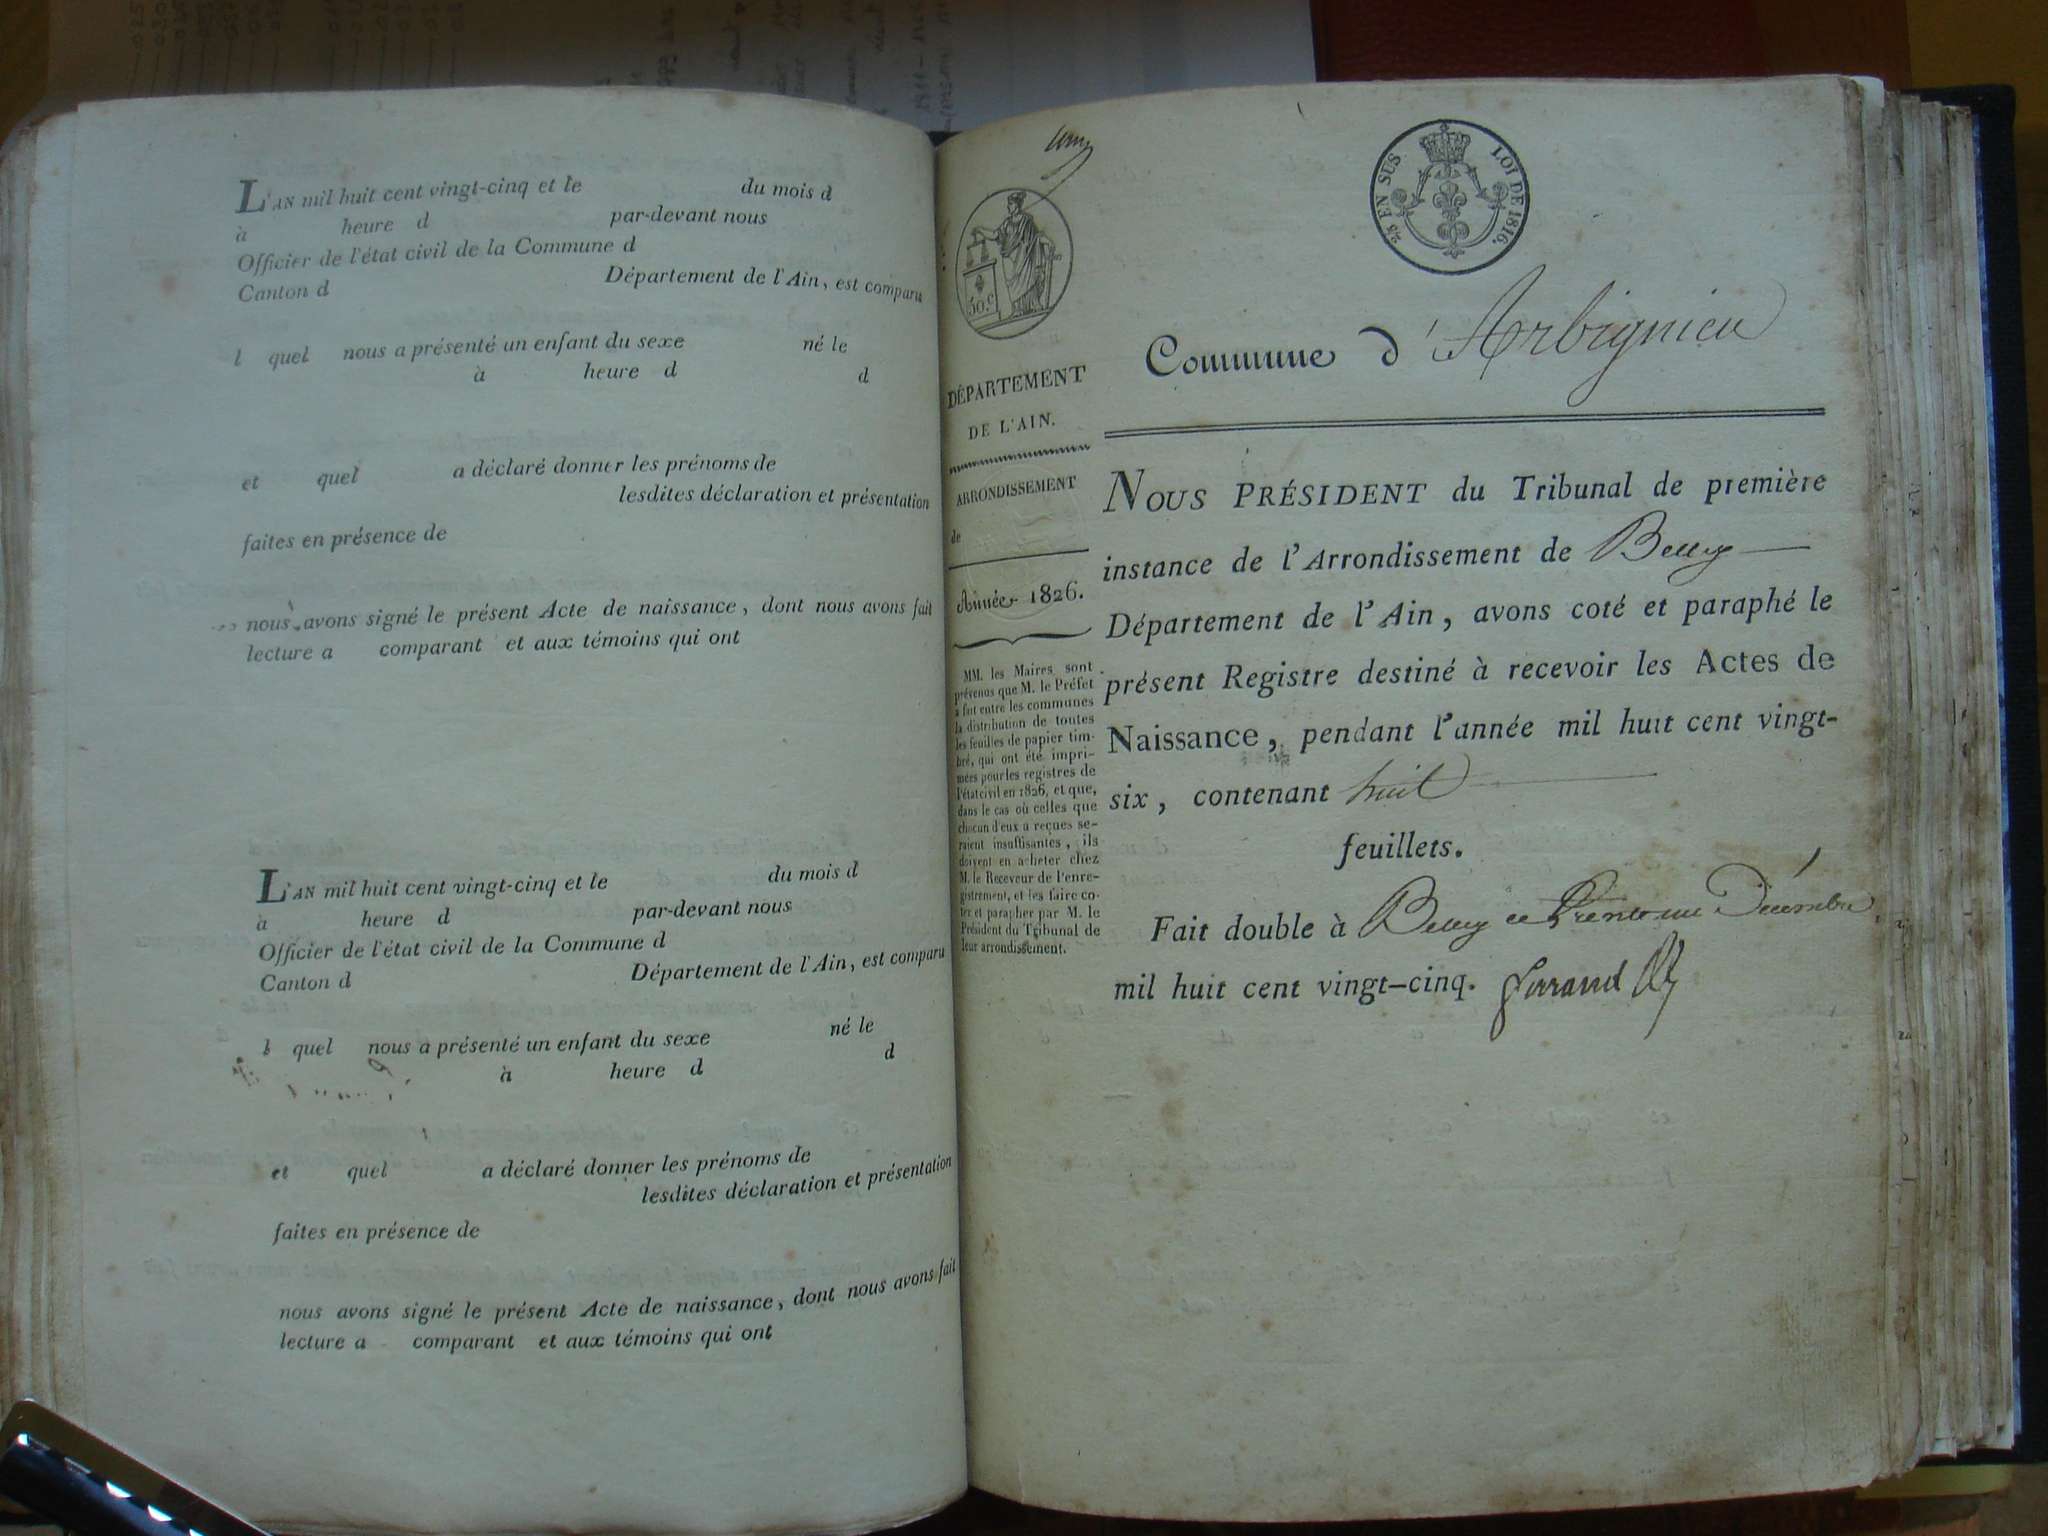 L'AN mil huit cent vingt-cinq et le du mois d
à heure d par-devant nous
Officier de l'état civil de la Commune d
Canton d Département de l'Ain, est comparu
l quel nous a présenté un enfant du sexe né le
à heure d d
et quel a déclaré donner les prénoms de
lesdites déclaration et présentation
faites en présence de
nous avons signé le présent Acte de naissance, dont nous avons fait
lecture a comparant et aux témoins qui ont
L'AN mil huit cent vingt-cinq et le du mois d
à heure d par-devant nous
Officier de l'état civil de la Commune d
Canton d Département de l'Ain, est comparu
l quel nous a présenté un enfant du sexe né le
à heure d d
et quel a déclaré donner les prénoms de
lesdites déclaration et présentation
faites en présence de
nous avons signé le présent Acte de naissance, dont nous avons fait
lecture a comparant et aux témoins qui ont
50.c
DÉPARTEMENT
DE L'AIN.
ARRONDISSEMENT
de
Année 1826.
MM. les Maires sont
prévenus que M. le Préfet
a fait entre les communes
la distribution de toutes
les feuilles de papier tim-
bré, qui ont été impri-
mées pour les registres de
l'état civil en 1826, et que,
dans le cas où celles que
chacun d'eux a reçues se-
raient insuffisantes, ils
doivent en acheter chez
M. le Receveur de l'enre-
gistrement, et les faire co-
ter et parapher par M. le
Président du Tribunal de
leur arrondissement.
EN SUS LOI DE 1816.
Commune d'Arbignieu
NOUS PRÉSIDENT du Tribunal de première
instance de l'Arrondissement de Belley
Département de l'Ain, avons coté et paraphé le
présent Registre destiné à recevoir les Actes de
Naissance, pendant l'année mil huit cent vingt-
six, contenant huit
feuillets.
Fait double à Belley ce trente un Décembre
mil huit cent vingt-cinq.